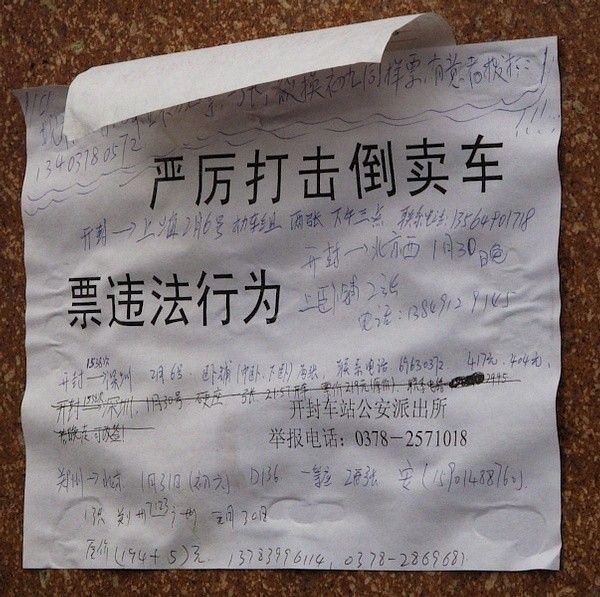 换初九同样票,有意者
13403780572
严厉打击倒卖车
开封→上海 2月6号 动车组 两张 下午三点 联系电话:13564901718
开封→北京西 1月30日晚
票违法行为
上卧铺2张
电话:1384912 9145
1538次
开封→深圳 2月6号 卧铺(中卧.下卧)两张, 联系电话 69630372 417元. 404元.
开封 深圳, 1月30号 硬座 5张
开封车站公安派出所
举报电话:0378-2571018
郑州→北京 1月31日(初六) D136 一等座 2张 安(15901488760).
1张 郑州 T123 广州 元月30日
原价(194+5)元 13783996114, 0378-2869681